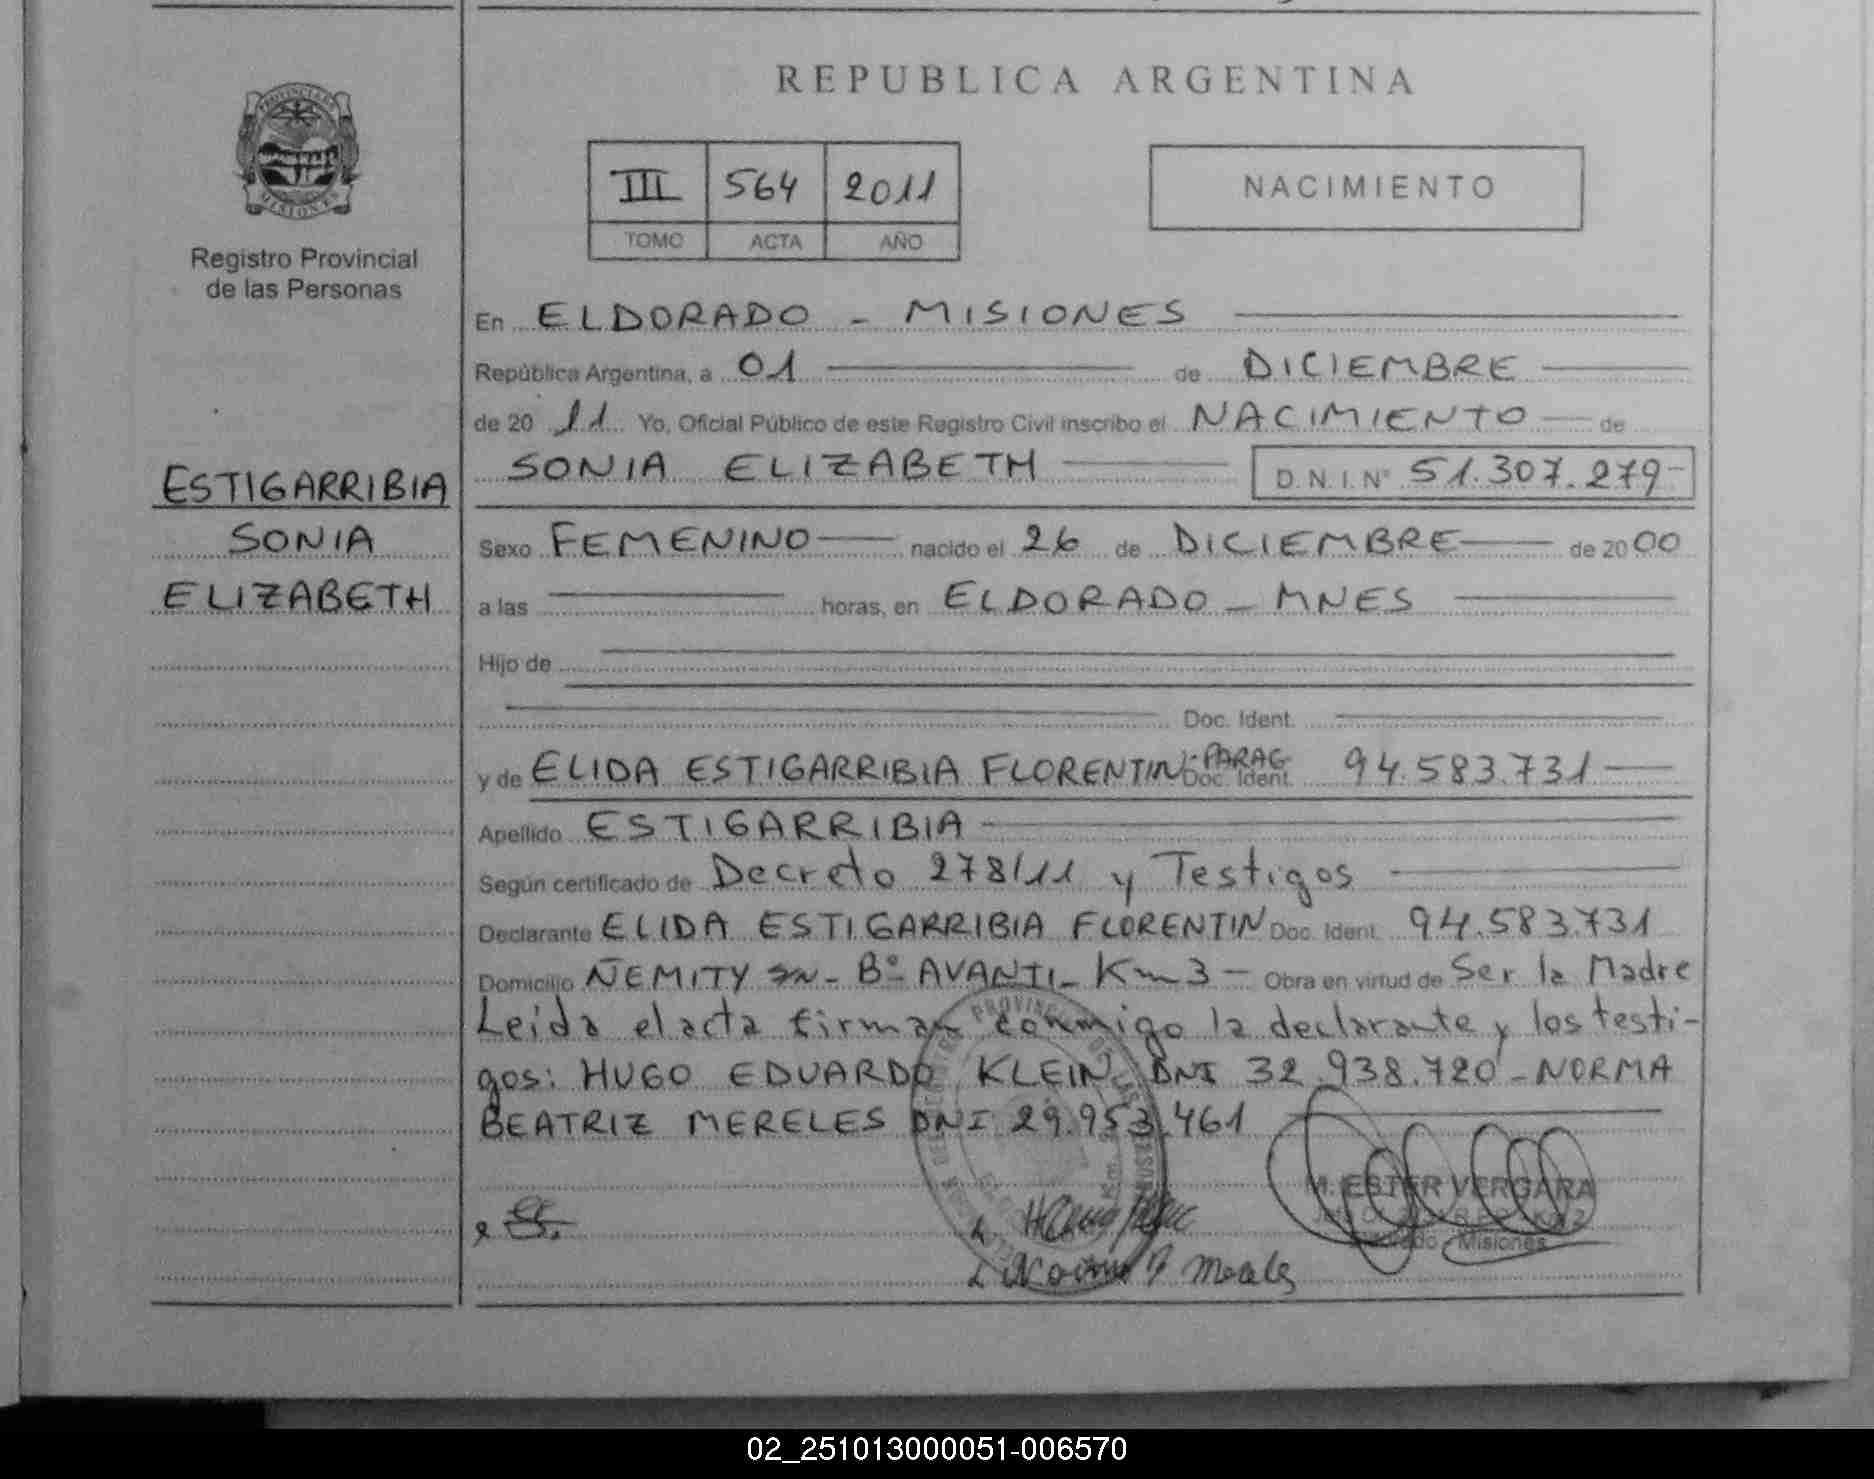 REPUBLICA ARGENTINA
PROVINCIA DE
MISIONES
III 564 2011
TOMO ACTA AÑO
NACIMIENTO
Registro Provincial
de las Personas
En ELDORADO - MISIONES
República Argentina, a 01 de DICIEMBRE
de 20 11 Yo, Oficial Público de este Registro Civil inscribo el NACIMIENTO de
SONIA ELIZABETH D.N.I. Nº 51.307.279
ESTIGARRIBIA
SONIA
ELIZABETH
Sexo FEMENINO nacido el 26 de DICIEMBRE de 20 00
a las horas, en ELDORADO - MNES
Hijo de
Doc. Ident.
y de ELIDA ESTIGARRIBIA FLORENTIN - PARAG Doc. Ident. 94.583.731
Apellido ESTIGARRIBIA
Según certificado de Decreto 278/11 y Testigos
Declarante ELIDA ESTIGARRIBIA FLORENTIN Doc. Ident. 94.583.731
Domicilio ÑEMITY SN - Bº AVANTI - Km 3 - Obra en virtud de Ser la Madre
Leida el acta firman conmigo la declarante y los testi-
gos: HUGO EDUARDO KLEIN DNI 32.938.720 - NORMA
BEATRIZ MERELES DNI 29.953.461
M. ESTER VERGARA
Eldorado - Misiones
02_251013000051-006570